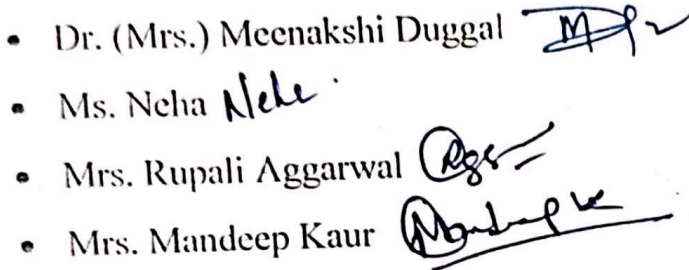 • Dr. (Mrs.) Meenakshi Duggal
• Ms. Neha Neha
• Mrs. Rupali Aggarwal
• Mrs. Mandeep Kaur Mandeep Kr